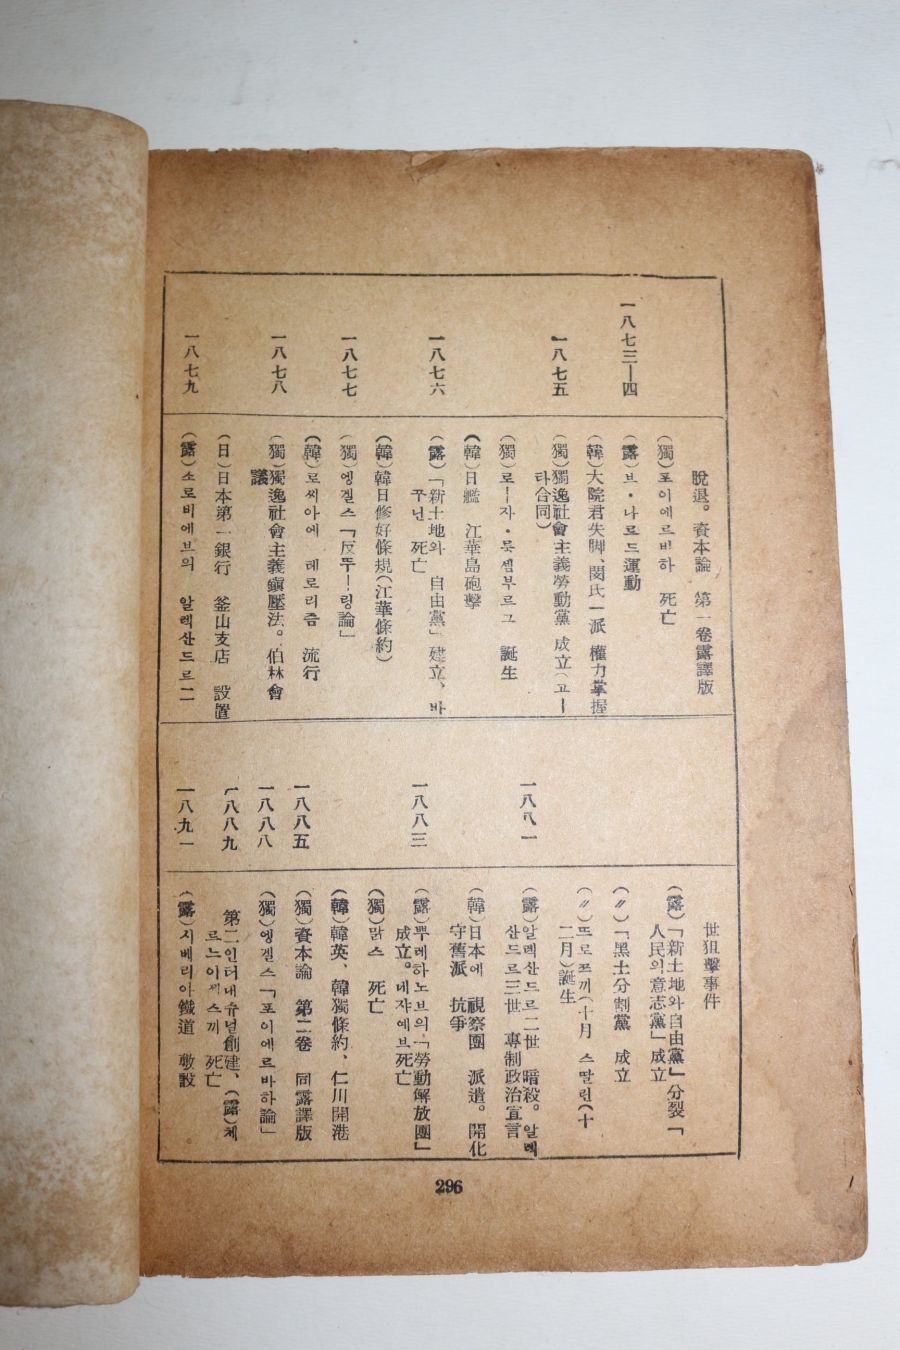 脫退。資本論 第一卷露譯版
一八七三—四
(獨)포이에르바하 死亡
(露)브・나로드運動
(韓)大院君失脚、閔氏一派 權力掌握
一八七五
(獨)獨逸社會主義勞動黨 成立(고ー
타合同)
(獨)로ー자・룩셈부르그 誕生
一八七六
(韓)日艦 江華島砲擊
(露)「新土地와 自由黨」建立、바
꾸닌 死亡
(韓)韓日修好條規(江華條約)
一八七七
(獨)엥겔스「反뚜ー링論」
(韓)로씨아에 테로리즘 流行
一八七八
(獨)獨逸社會主義鎭壓法。伯林會
議
(日)日本第一銀行 釜山支店 設置
一八七九
(露)소로비에브의 알렉산드르二
世狙擊事件
(露)「新土地와自由黨」分裂「
人民의意志黨」成立
(〃)「黑土分割黨 成立
(〃)뜨로쯔끼(十月 스딸린(十
二月)誕生
一八八一
(露)알렉산드르二世 暗殺。알렉
산드르三世 專制政治宣言
(韓)日本에 視察團 派遣。開化
守舊派 抗爭
一八八三
(露)뿌레하노브의「勞動解放團」
成立。네쟈예브死亡
(獨)맑스 死亡
(韓)韓英、韓獨條約、仁川開港
一八八五
(獨)資本論 第二卷 同露譯版
一八八八
(獨)엥겔스「포이에르바하論」
一八八九
第二인터내슈널創建、(露)체
르느이쎄스끼 死亡
一八九一
(露)시베리아鐵道 敷設
296